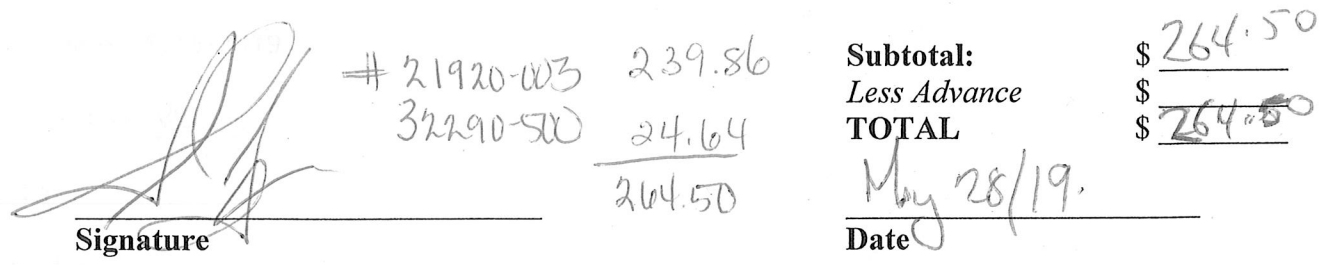 # 21920-003 239.86
32290-500 24.64
264.50
Subtotal: $ 264.50
Less Advance $
TOTAL $ 264.50
May 28/19.
Signature
Date